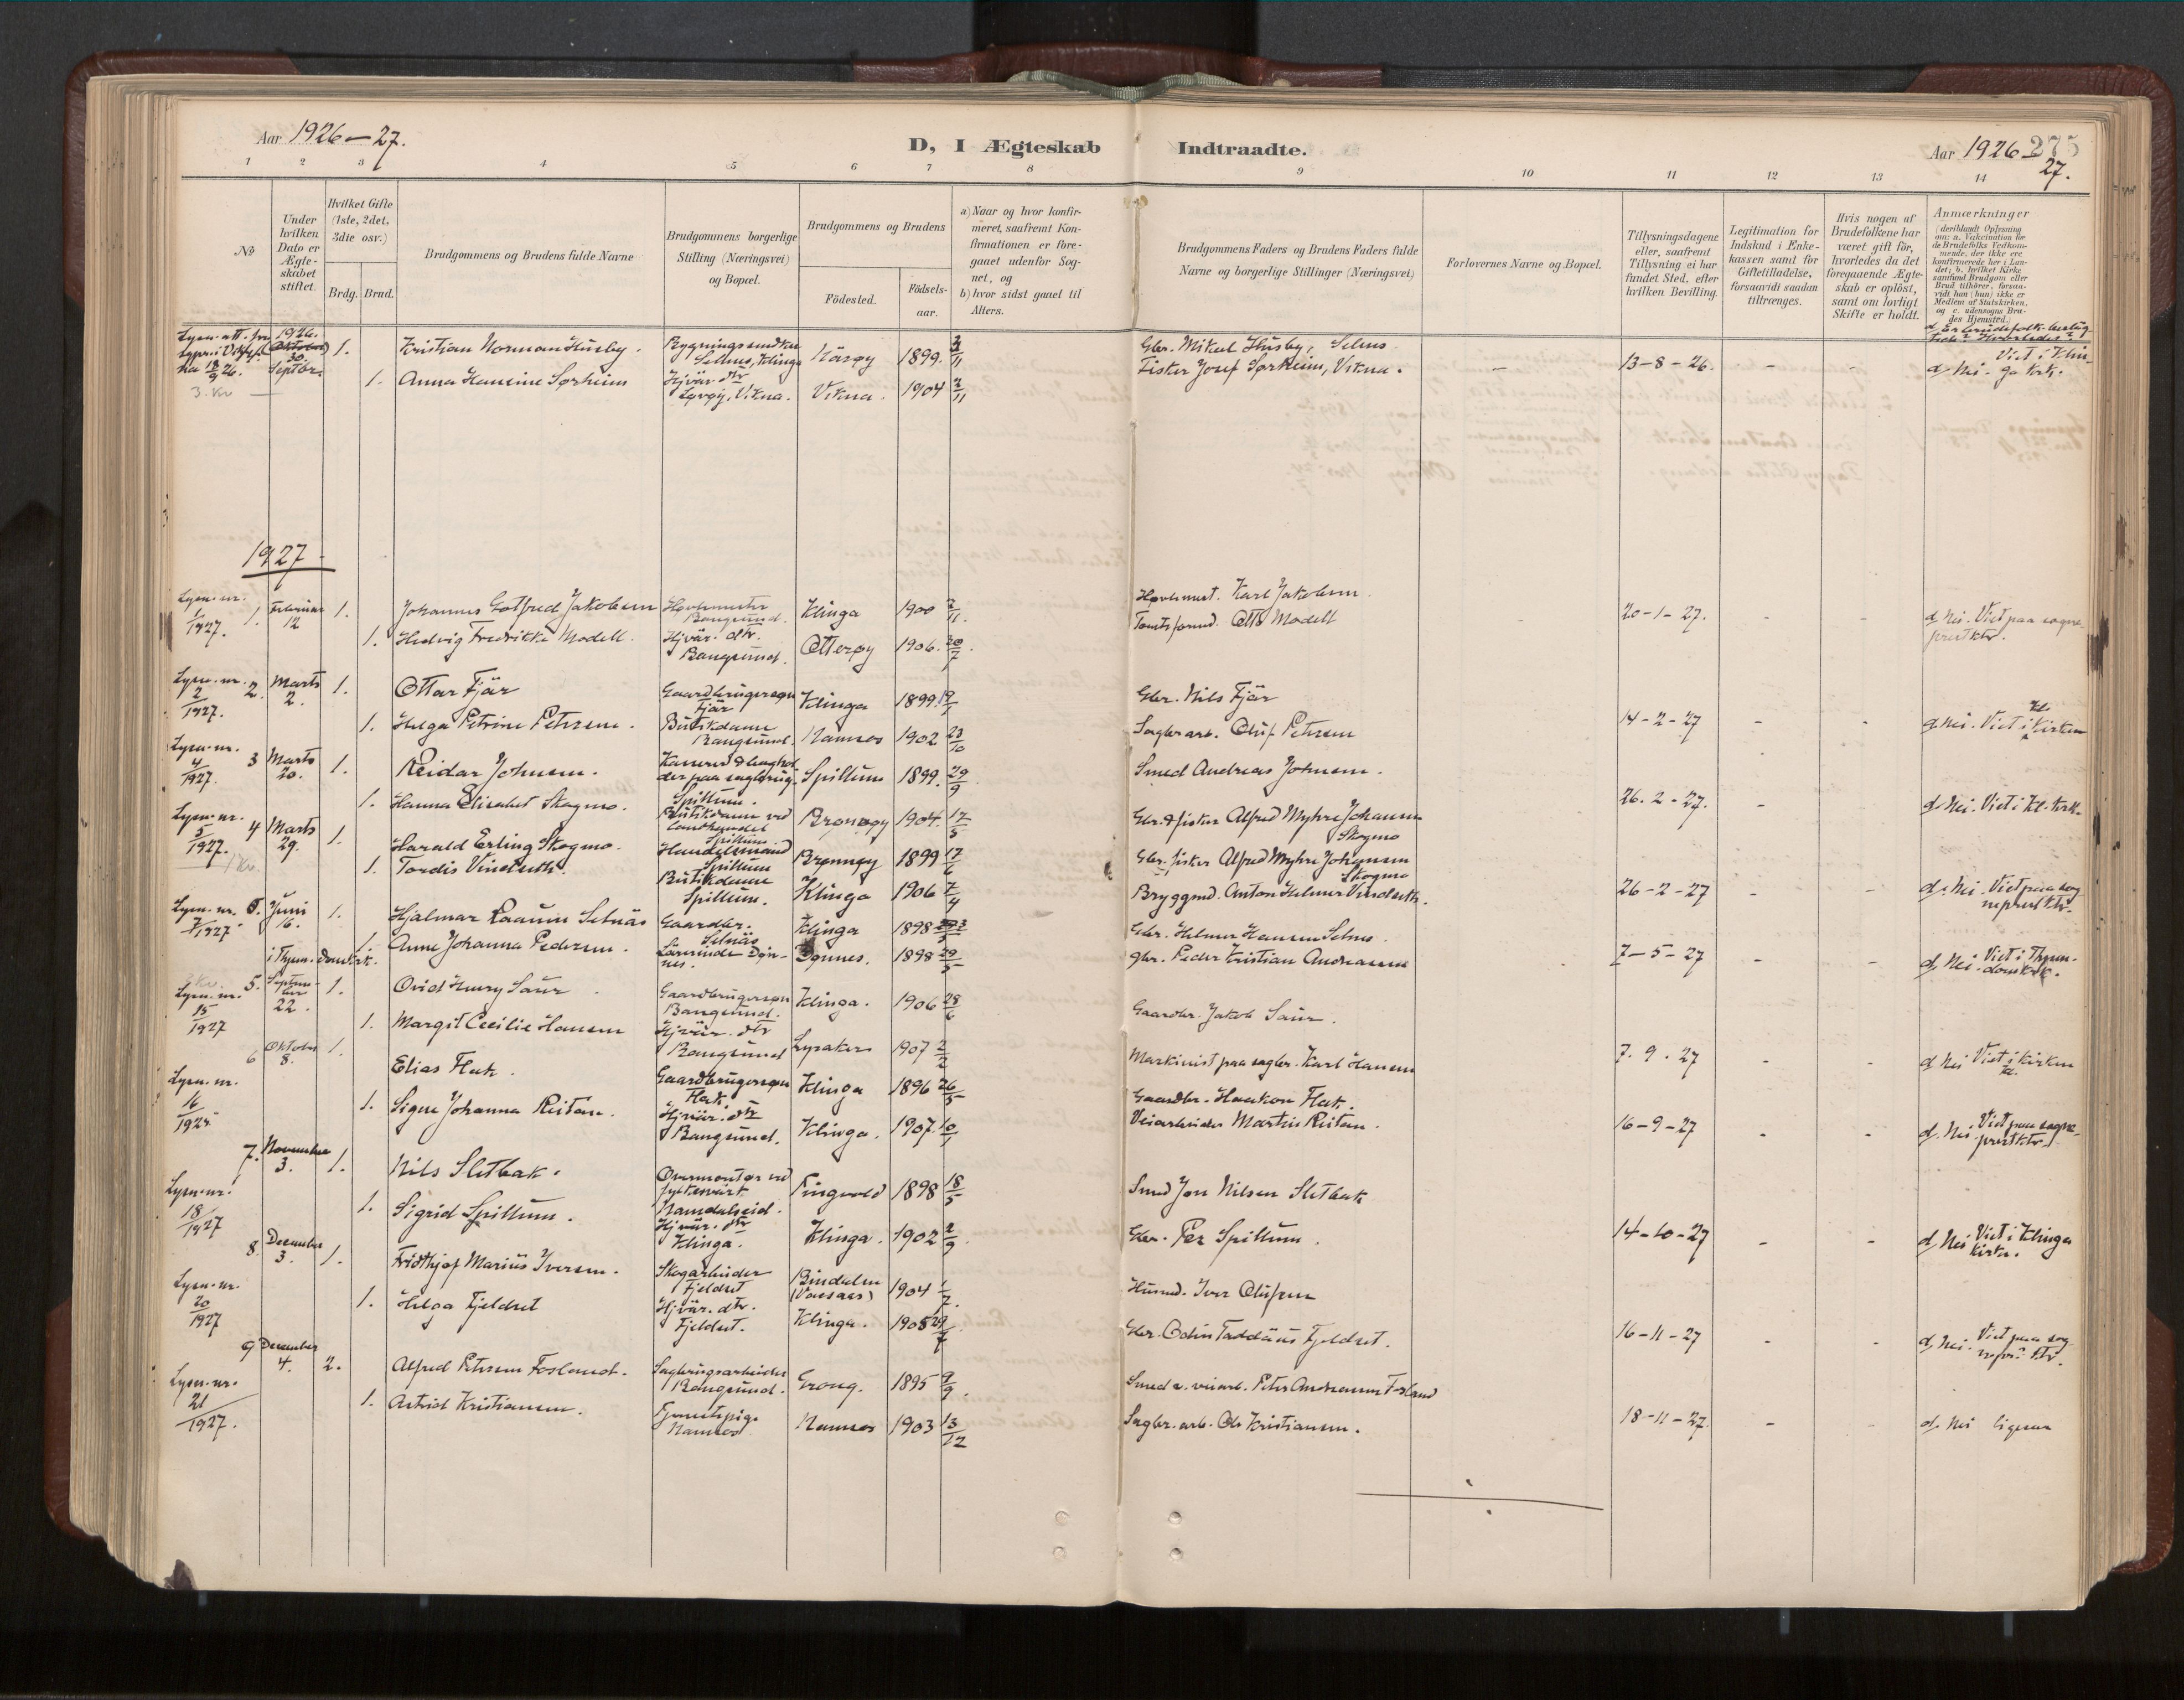 Aar 1926-27.
D, I Ægteskab Indtraadte.
Aar 1926-27.
275
1 2 3 4 5 6 7 8 9 10 11 12 13 14
№
Under hvilken Dato er Ægteskabet stiftet.
Hvilket Gifte (1ste, 2det, 3die osv.)
Brdg. Brud.
Brudgommens og Brudens fulde Navne
Brudgommens borgerlige Stilling (Næringsvei) og Bopæl.
Brudgommens og Brudens
Födested.
Födsels-aar.
a) Naar og hvor konfir-
meret, saafremt Kon-
firmationen er fore-
gaaet udenfor Sog-
net, og
b) hvor sidst gaaet til
Alters.
Brudgommens Faders og Brudens Faders fulde
Navne og borgerlige Stillinger (Næringsvei)
Forlovernes Navne og Bopæl.
Tillysningsdagene
eller, saafremt
Tillysning ei har
fundet Sted, efter
hvilken Bevilling.
Legitimation for
Indskud i Enke-
kassen samt for
Giftetilladelse,
forsaavidt saadan
tiltrænges.
Hvis nogen af
Brudefolkene har
været gift för,
hvorledes da det
foregaaende Ægte-
skab er oplöst,
samt om lovligt
Skifte er holdt.
Anmærkninger
(deriblandt Oplysning
om: a. Vakcination for
de Brudefolks Vedkom-
mende, der ikke ere
konfirmerede her i Lan-
det; b. hvilket Kirke
samfund Brudgom eller
Brud tilhörer, forsaa-
vidt han (hun) ikke er
Medlem af Statskirken,
og c. udensogns Bru-
des Hjemsted.)
1926. 30. Septbr. 1. Kristian Norman Husby. Selnes, Klinga Kärøy 1899. 3/11 Gbr. Mikal Husby, Selnes 13-8-26. - - d, Nei. Viet i Klinga kirk.
3. Kr 1. Anna Hansine Sørheim Hjvär. dtr Vikna. Vikna. 1904 2/11 Fisker Josef Sørheim, Vikna.
1927
Lysn. nr. 1/1927. 1. Februar 12 1. Johannes Gotfred Jakobsen Bangsund. Klinga 1900 2/11 Karl Jakobsen 20-1-27. d, Nei. Viet paa sogneprestktr.
1. Hedvig Fredrikke Modell. Hjvär. dtr. Bangsund. Otterøy 1906. 20/7 Otto Modell
Lysn. nr. 2/1927. 2. Marts 2. 1. Ottar Fjär Gaardbrugersøn Fjär Klinga 1899. Gbr. Nils Fjär 14-2-27 - - d, Nei. Viet i Kl. kirken
1. Helga Petrine Petersen. Butikdame Bangsund. Namsos 1902 23/10 Sagbr.arb. Oluf Petersen
Lysn. nr. 4/1927. 3 Marts 20. 1. Reidar Johnsen. Spillum 1899. 29/9 Smed Andreas Johnsen. 26.2-27. - d, Nei. Viet i Kl. kirk.
1. Hanna Elisabet Skogmo. Butikdame ved landhandel Spillum Brønnøy 1904. 17/5 Gbr. & fisker Alfred Myhre Johansen Skogmo
Lysn. nr. 5/1927. 4 Marts 29. 1. Harald Erling Skogmo. Handelsmand Spillum Brønnøy 1899 17/6 Gbr. fisker Alfred Myhre Johansen Skogmo 26-2-27 - - d, Nei. Viet paa sogneprest ktr.
1 Kr. 1. Tordis Vindseth. Butikdame Spillum. Klinga 1906 7/4 Bryggmd. Anton Helmer Vindseth.
Lysn. nr. 7/1927. Juni 16. 1. Hjalmar Selnäs Gaardbr. Selnäs Klinga 1898 Gbr. Helmer Hansen Selnes. 7-5-27 - - d, Nei. Viet i Thjem. domkirk.
i Thjem. domkirk. 1. Anne Johanna Pedersen. Lärerinde 1898 29/5 gbr. Peder Kristian Andreasen
Lysn. nr. 15/1927 5. September 22. 1. Ovid Henry Saur Gaardbrugersøn Bangsund. Klinga. 1906 28/6 Gaardbr. Jakob Saur. 7.9.27 - - d, Nei Viet i kirken
1. Margit Cecilie Hansen Hjvär. dtr Bangsund Lysaker 1907 2/2 Maskinist paa sagbr. Karl Hansen
Lysn. nr. 16/1927 6 Oktober 8. 1. Elias Flak. Gaardbrugersøn Flak Klinga 1896 26/5 Gaardbr. Haakon Flak. 16-9-27 - - d, Nei. Viet paa sogneprestktr.
1. Signe Johanna Reitan. Hjvär. dtr Bangsund. Klinga. 1907. Veiarbeider Martin Reitan.
Lysn. nr. 18/1927 7. November 3. 1. Nils Sletbak. Overmontør ved Namdalseid. Tingvold 1898 18/5 Smed Jon Nilsen Sletbak 14-10-27 - - d, Nei Viet i Klinga kirke.
1. Sigrid Spillum. Hjvär. dtr Klinga. Klinga. 1902 2/9 Gbr. Per Spillum.
Lysn. nr. 20/1927 8. December 3. 1. Fridthjof Marius Iversen. Skogarbeider Fjeldset Bindalen 1904 1/7. Husmd. Iver Olufsen 16-11-27 - - d, Nei. Viet paa sognepr. ktr.
1. Helga Fjeldset Hjvär. dtr. Fjeldset. Klinga. 1905 29/7 Gbr. Odin Taddäus Fjeldset.
Lysn. nr. 21/1927. 9 December 4. 2. Alfred Petersen Fosland. Sagbrugsarbeider Bangsund. Grong. 1895 9/9. Peter Andreassen Fosland 18-11-27. - - d. Nei ligesaa
1. Astrid Kristiansen. Namsos Namsos 1903 13/12 Sagbr. arb. Ole Kristiansen.